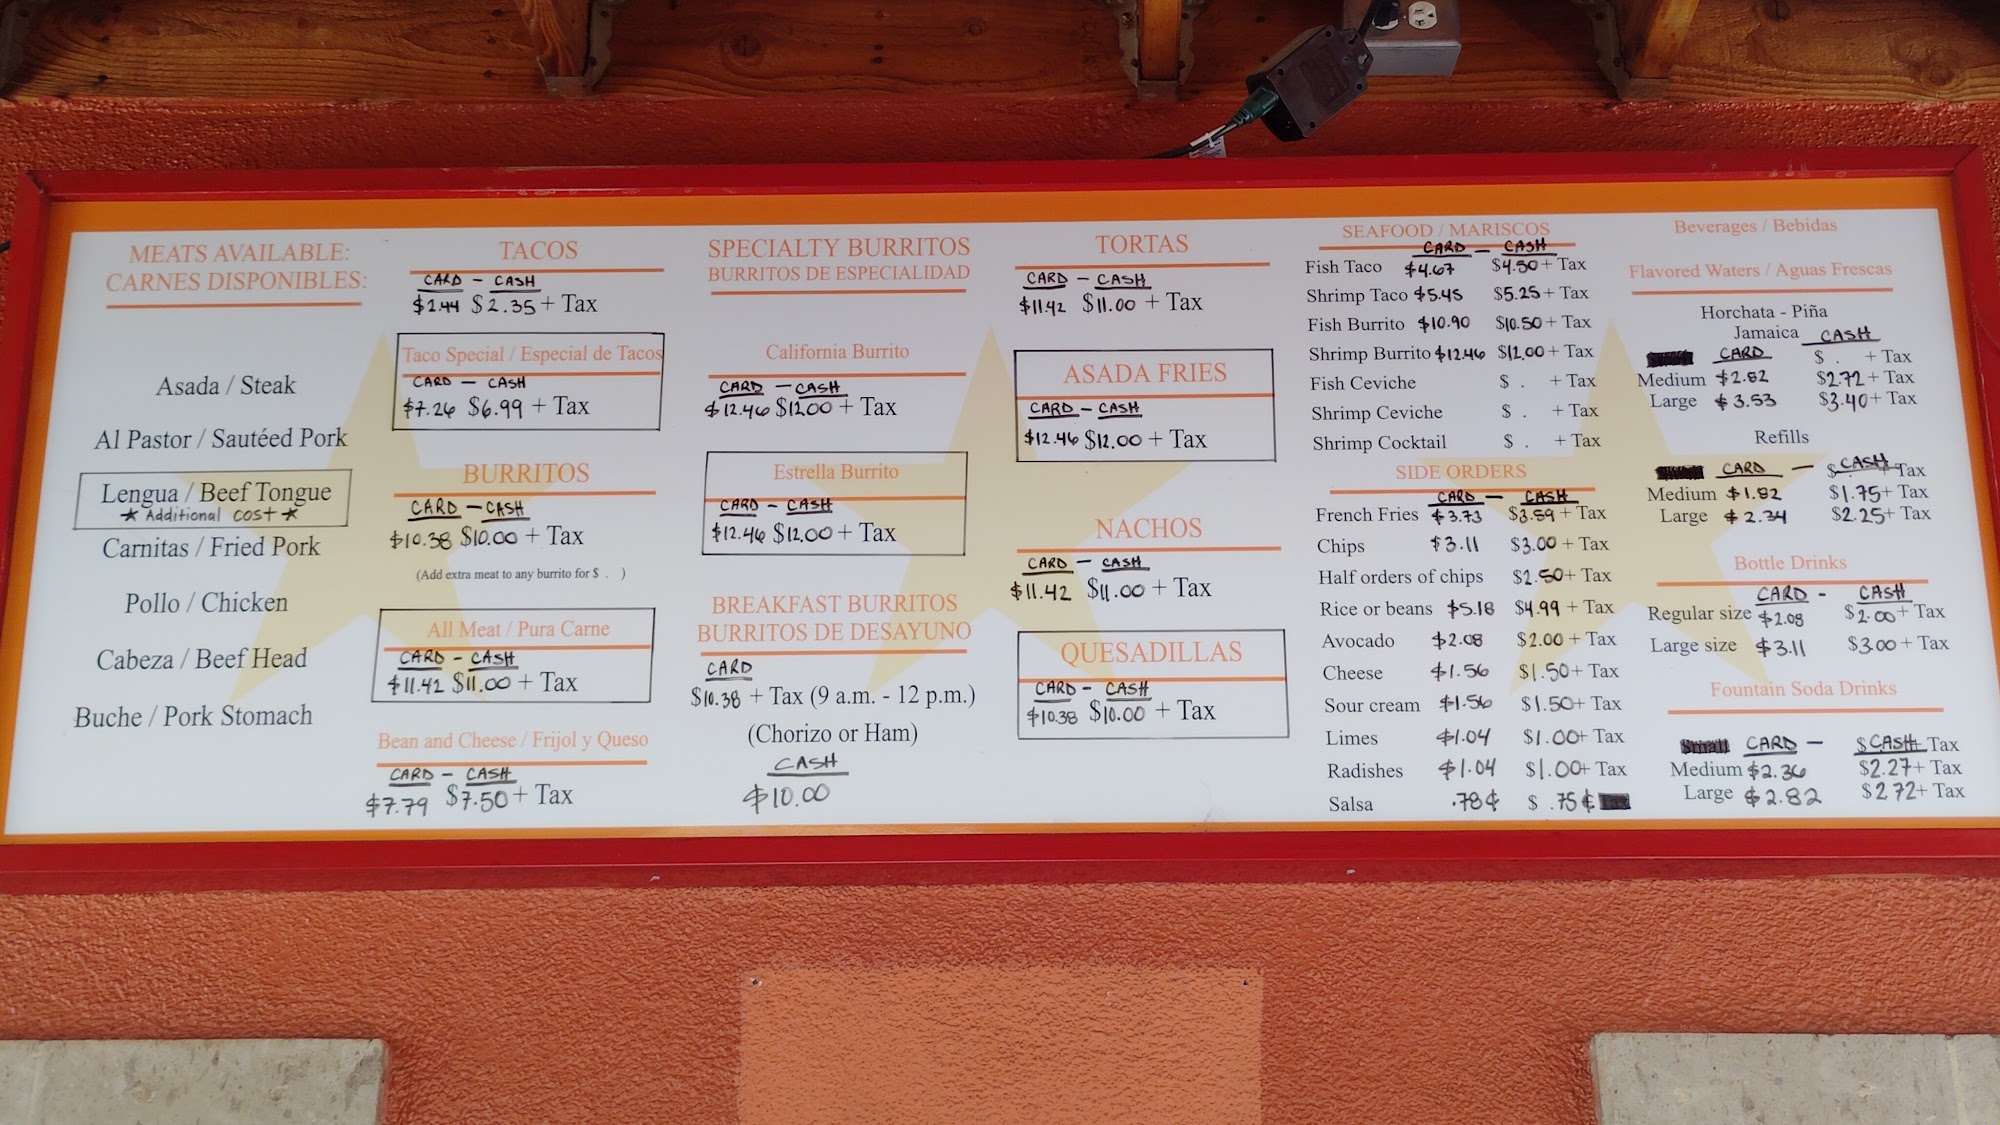 MEATS AVAILABLE:
CARNES DISPONIBLES:
Asada / Steak
Al Pastor / Sautéed Pork
Lengua / Beef Tongue
★ Additional cost ★
Carnitas / Fried Pork
Pollo / Chicken
Cabeza / Beef Head
Buche / Pork Stomach
TACOS
CARD - CASH
$2.44 $2.35 + Tax
Taco Special / Especial de Tacos
CARD - CASH
$7.26 $6.99 + Tax
BURRITOS
CARD - CASH
$10.38 $10.00 + Tax
(Add extra meat to any burrito for $ . )
All Meat / Pura Carne
CARD - CASH
$11.42 $11.00 + Tax
Bean and Cheese / Frijol y Queso
CARD - CASH
$7.79 $7.50 + Tax
SPECIALTY BURRITOS
BURRITOS DE ESPECIALIDAD
California Burrito
CARD - CASH
$12.46 $12.00 + Tax
Estrella Burrito
CARD - CASH
$12.46 $12.00 + Tax
BREAKFAST BURRITOS
BURRITOS DE DESAYUNO
CARD
$10.38 + Tax (9 a.m. - 12 p.m.)
(Chorizo or Ham)
CASH
$10.00
TORTAS
CARD - CASH
$11.42 $11.00 + Tax
ASADA FRIES
CARD - CASH
$12.46 $12.00 + Tax
NACHOS
CARD - CASH
$11.42 $11.00 + Tax
QUESADILLAS
CARD - CASH
$10.38 $10.00 + Tax
SEAFOOD / MARISCOS
CARD - CASH
Fish Taco $4.67 $4.50 + Tax
Shrimp Taco $5.45 $5.25 + Tax
Fish Burrito $10.90 $10.50 + Tax
Shrimp Burrito $12.46 $12.00 + Tax
Fish Ceviche $ . + Tax
Shrimp Ceviche $ . + Tax
Shrimp Cocktail $ . + Tax
SIDE ORDERS
CARD - CASH
French Fries $3.73 $3.59 + Tax
Chips $3.11 $3.00 + Tax
Half orders of chips $2.50 + Tax
Rice or beans $5.18 $4.99 + Tax
Avocado $2.08 $2.00 + Tax
Cheese $1.56 $1.50 + Tax
Sour cream $1.56 $1.50 + Tax
Limes $1.04 $1.00 + Tax
Radishes $1.04 $1.00 + Tax
Salsa .78¢ $ .75¢
Beverages / Bebidas
Flavored Waters / Aguas Frescas
Horchata - Piña
Jamaica CASH
CARD $ . + Tax
Medium $2.82 $2.72 + Tax
Large $3.53 $3.40 + Tax
Refills
CARD - $ CASH + Tax
Medium $1.82 $1.75 + Tax
Large $2.34 $2.25 + Tax
Bottle Drinks
CARD - CASH
Regular size $2.08 $2.00 + Tax
Large size $3.11 $3.00 + Tax
Fountain Soda Drinks
Small CARD - $ CASH + Tax
Medium $2.36 $2.27 + Tax
Large $2.82 $2.72 + Tax